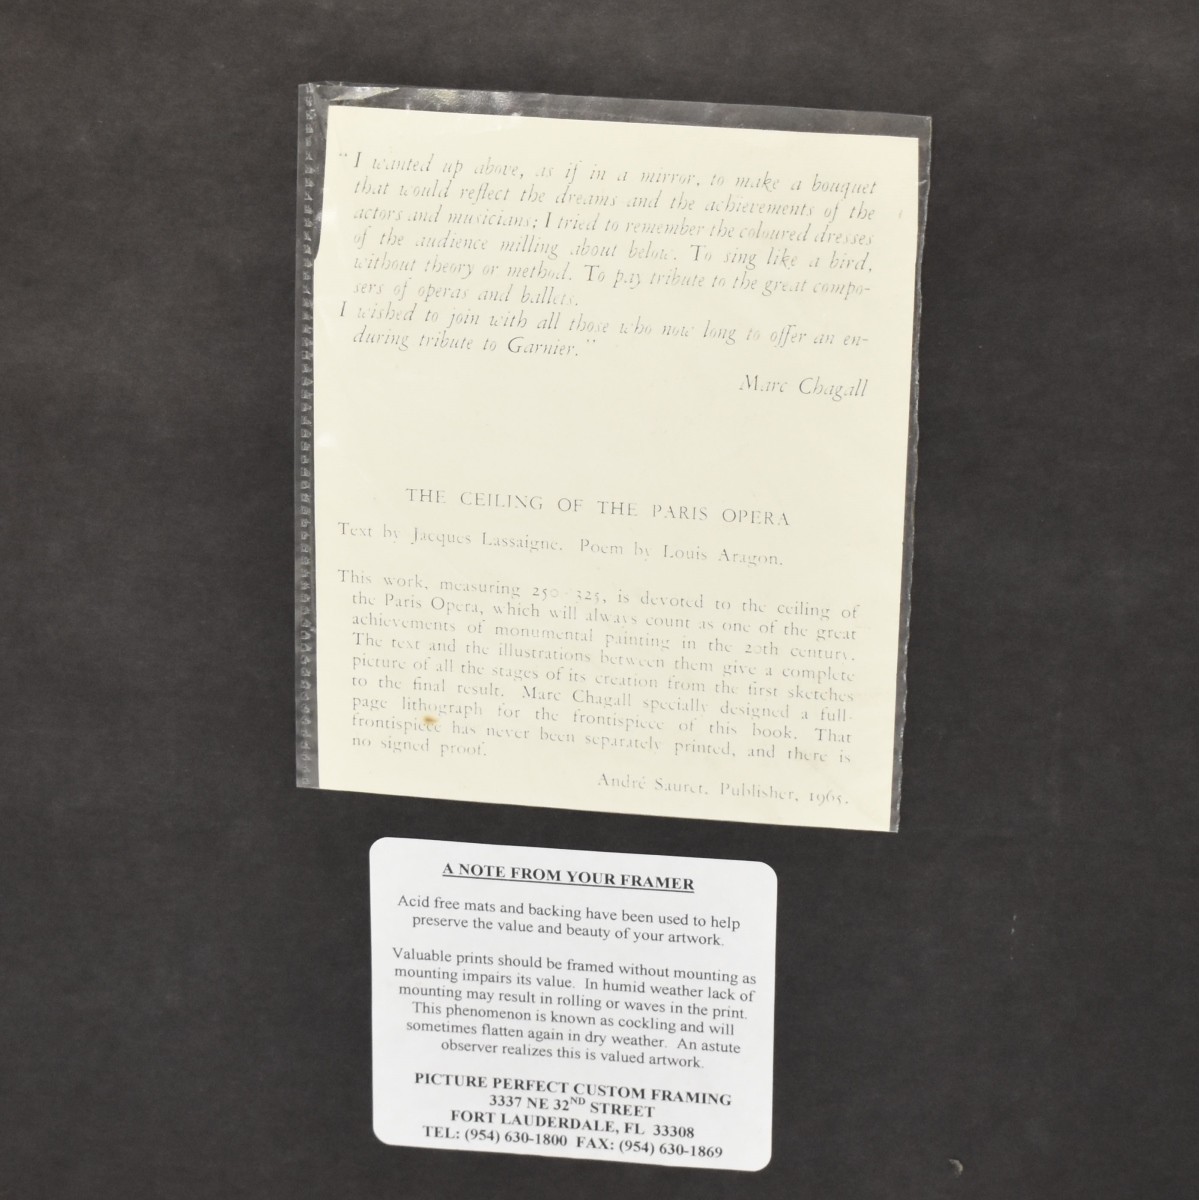 “ I wanted up above, as if in a mirror, to make a bouquet
that would reflect the dreams and the achievements of the
actors and musicians; I tried to remember the coloured dresses
of the audience milling about below. To sing like a bird,
without theory or method. To pay tribute to the great compo-
sers of operas and ballets.
I wished to join with all those who now long to offer an en-
during tribute to Garnier. ”
Marc Chagall
THE CEILING OF THE PARIS OPERA
Text by Jacques Lassaigne. Poem by Louis Aragon.
This work, measuring 250 325, is devoted to the ceiling of
the Paris Opera, which will always count as one of the great
achievements of monumental painting in the 20th century.
The text and the illustrations between them give a complete
picture of all the stages of its creation from the first sketches
to the final result. Marc Chagall specially designed a full-
page lithograph for the frontispiece of this book. That
frontispiece has never been separately printed, and there is
no signed proof.
André Sauret, Publisher, 1965.
A NOTE FROM YOUR FRAMER
Acid free mats and backing have been used to help
preserve the value and beauty of your artwork.
Valuable prints should be framed without mounting as
mounting impairs its value. In humid weather lack of
mounting may result in rolling or waves in the print.
This phenomenon is known as cockling and will
sometimes flatten again in dry weather. An astute
observer realizes this is valued artwork.
PICTURE PERFECT CUSTOM FRAMING
3337 NE 32ND STREET
FORT LAUDERDALE, FL 33308
TEL: (954) 630-1800 FAX: (954) 630-1869